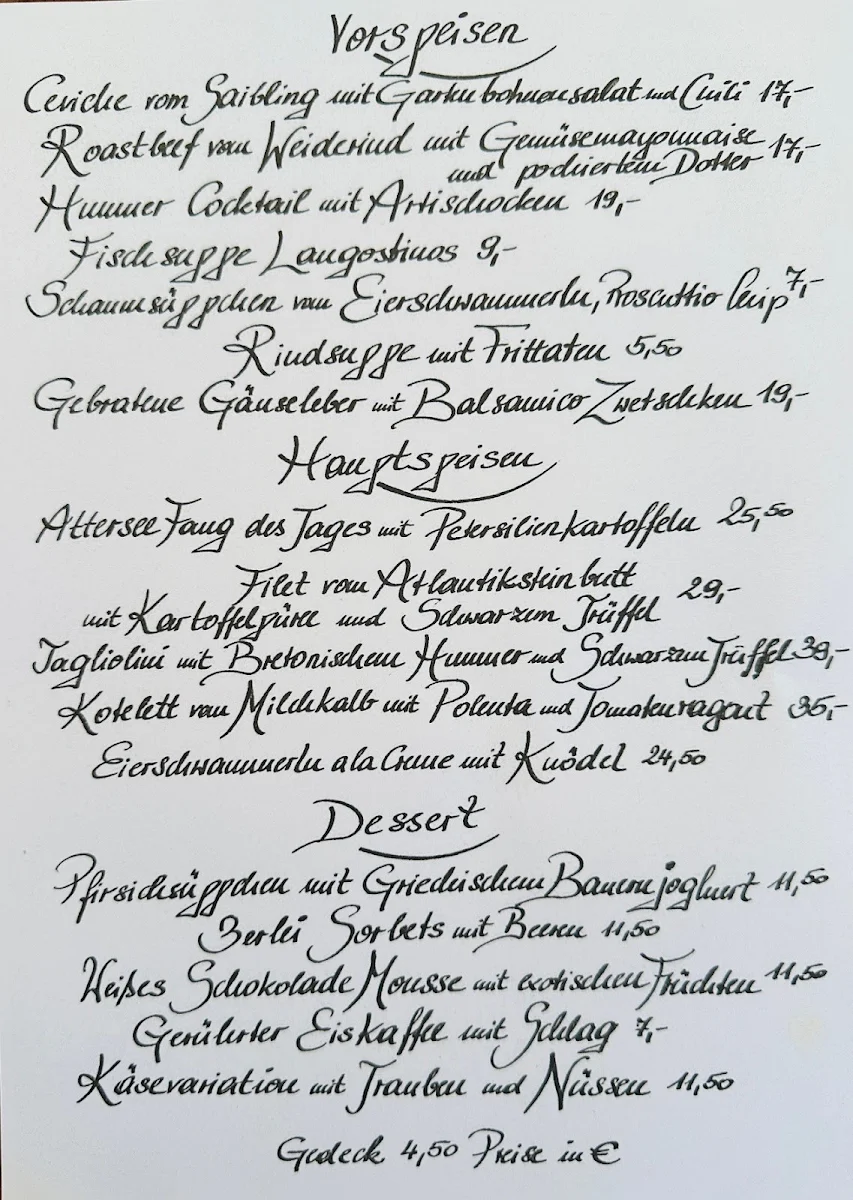 Vorspeisen
Ceviche vom Saibling mit Gartenbohnensalat und Chili 17,-
Roastbeef vom Weiderind mit Gemüsemayonnaise 17,-
und pochiertem Dotter
Hummer Cocktail mit Artischocken 19,-
Fischsuppe Langostinos 9,-
Schaumsüppchen von Eierschwammerln, Proscuttio Chip 7,-
Rindsuppe mit Frittaten 5,50
Gebratene Gänseleber mit Balsamico Zwetschken 19,-
Hauptspeisen
Attersee Fang des Tages mit Petersilienkartoffeln 25,50
Filet vom Atlantiksteinbutt 29,-
mit Kartoffelpüree und Schwarzem Trüffel
Tagliolini mit Bretonischem Hummer und Schwarzem Trüffel 39,-
Kotelett vom Milchkalb mit Polenta und Tomatenragout 35,-
Eierschwammerln a la Creme mit Knödel 24,50
Dessert
Pfirsichsüppchen mit Griechischem Bauernjoghurt 11,50
3erlei Sorbets mit Beeren 11,50
Weißes Schokolade Mousse mit exotischen Früchten 11,50
Gerührter Eiskaffee mit Schlag 7,-
Käsevariation mit Trauben und Nüssen 11,50
Gedeck 4,50 Preise in €